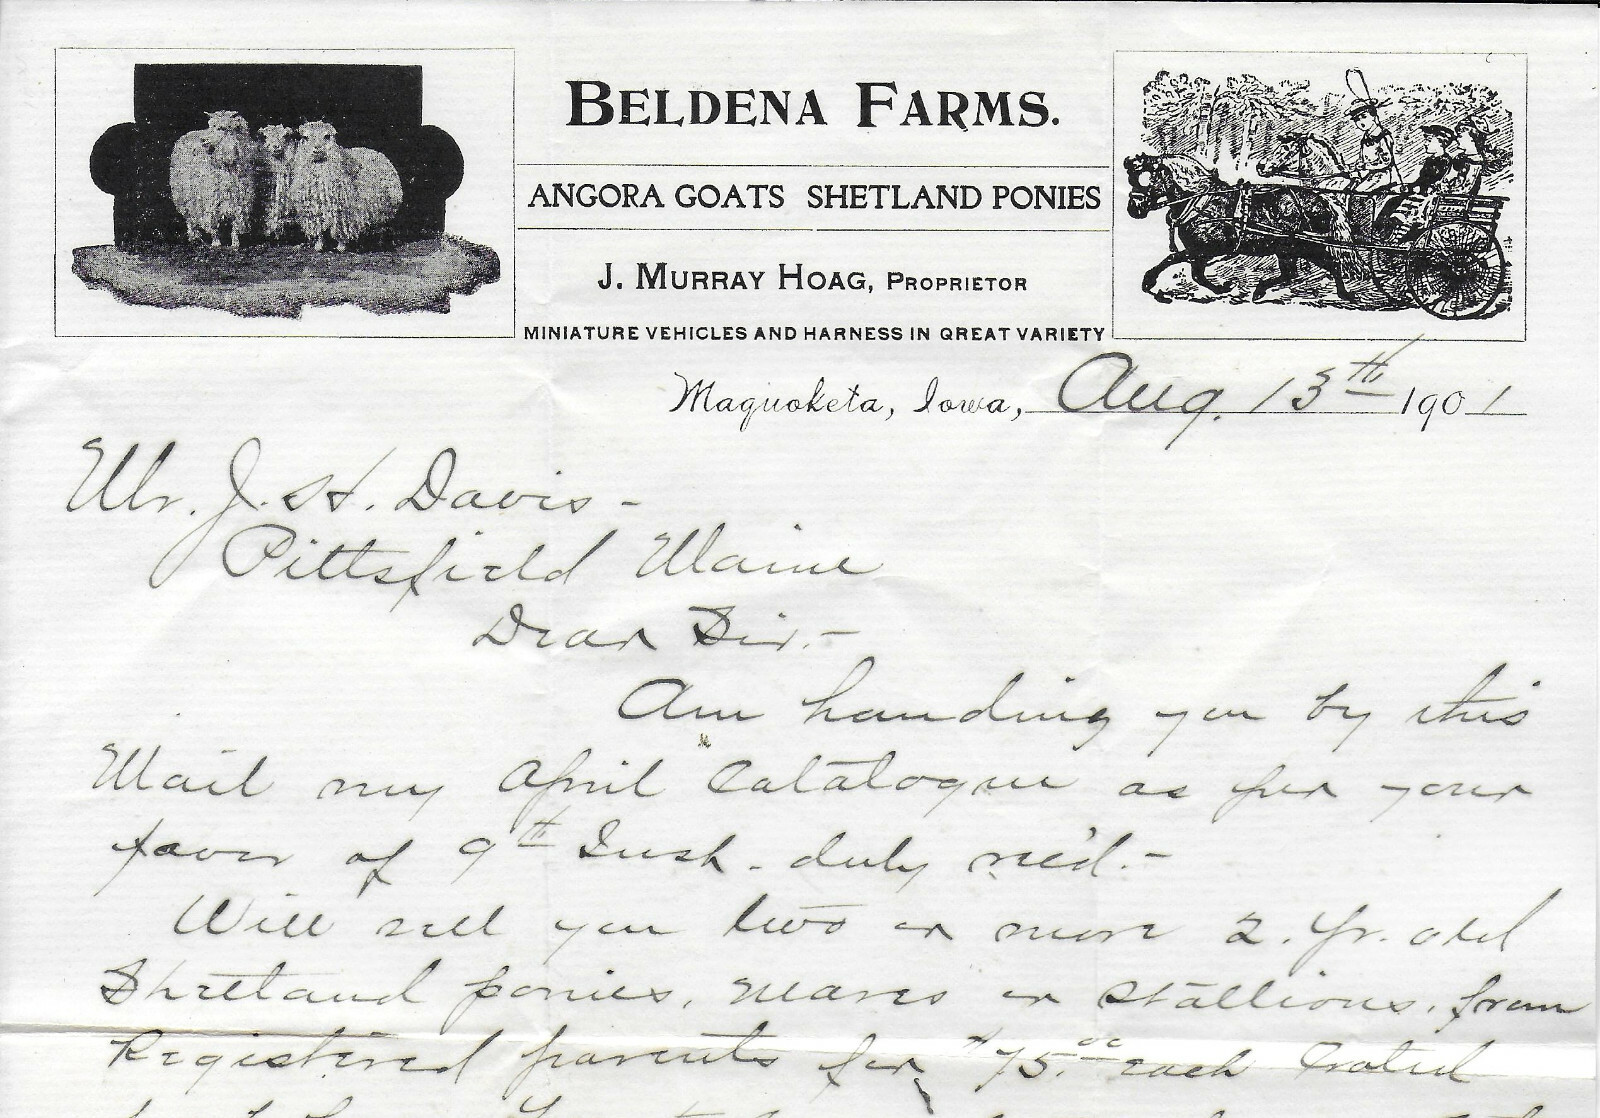 BELDENA FARMS.
ANGORA GOATS SHETLAND PONIES
J. MURRAY HOAG, PROPRIETOR
MINIATURE VEHICLES AND HARNESS IN GREAT VARIETY
Maquoketa, Iowa, Aug. 13th 1901
Mr. J. H. Davis -
Pittsfield Maine
Dear Sir. -
Am handing you by this
Mail my April Catalogue as per your
favor of 9th Inst. duly rec'd. -
Will sell you two or more 2. Yr. old
Shetland ponies, Mares or Stallions, from
Registered parents for $75.00 each Crated